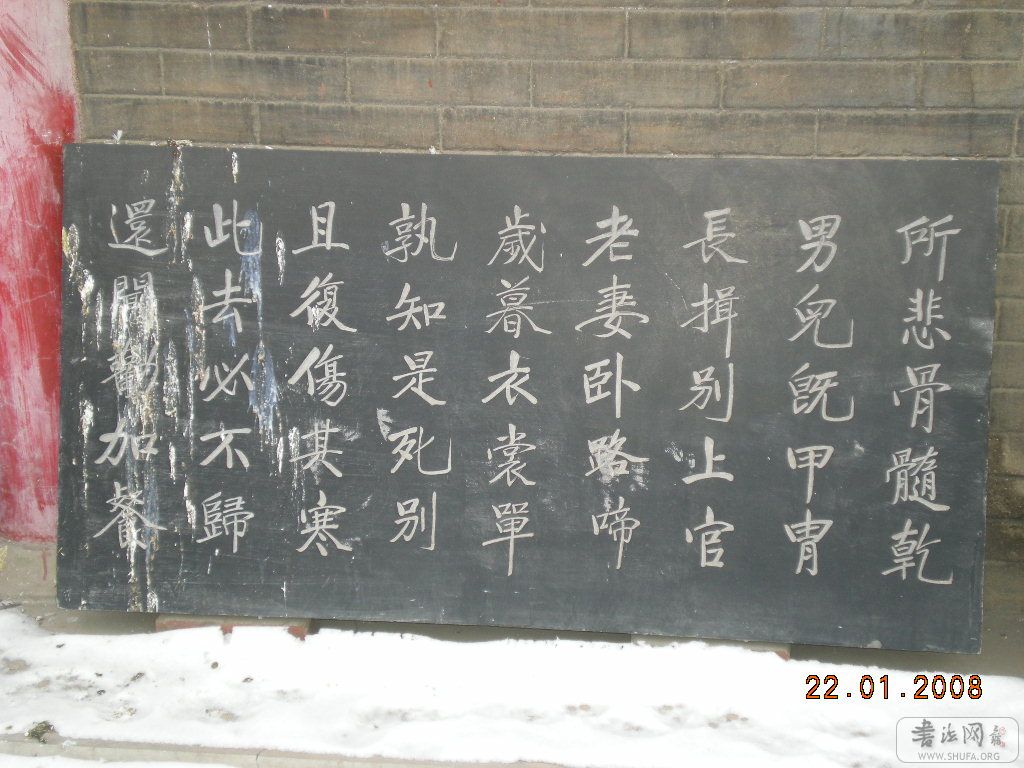 所悲骨髓乾
男兒既甲冑
長揖別上官
老妻卧路啼
歲暮衣裳單
孰知是死別
且復傷其寒
此去必不歸
還聞勸加餐
22.01.2008
书法网
WWW.SHUFA.ORG